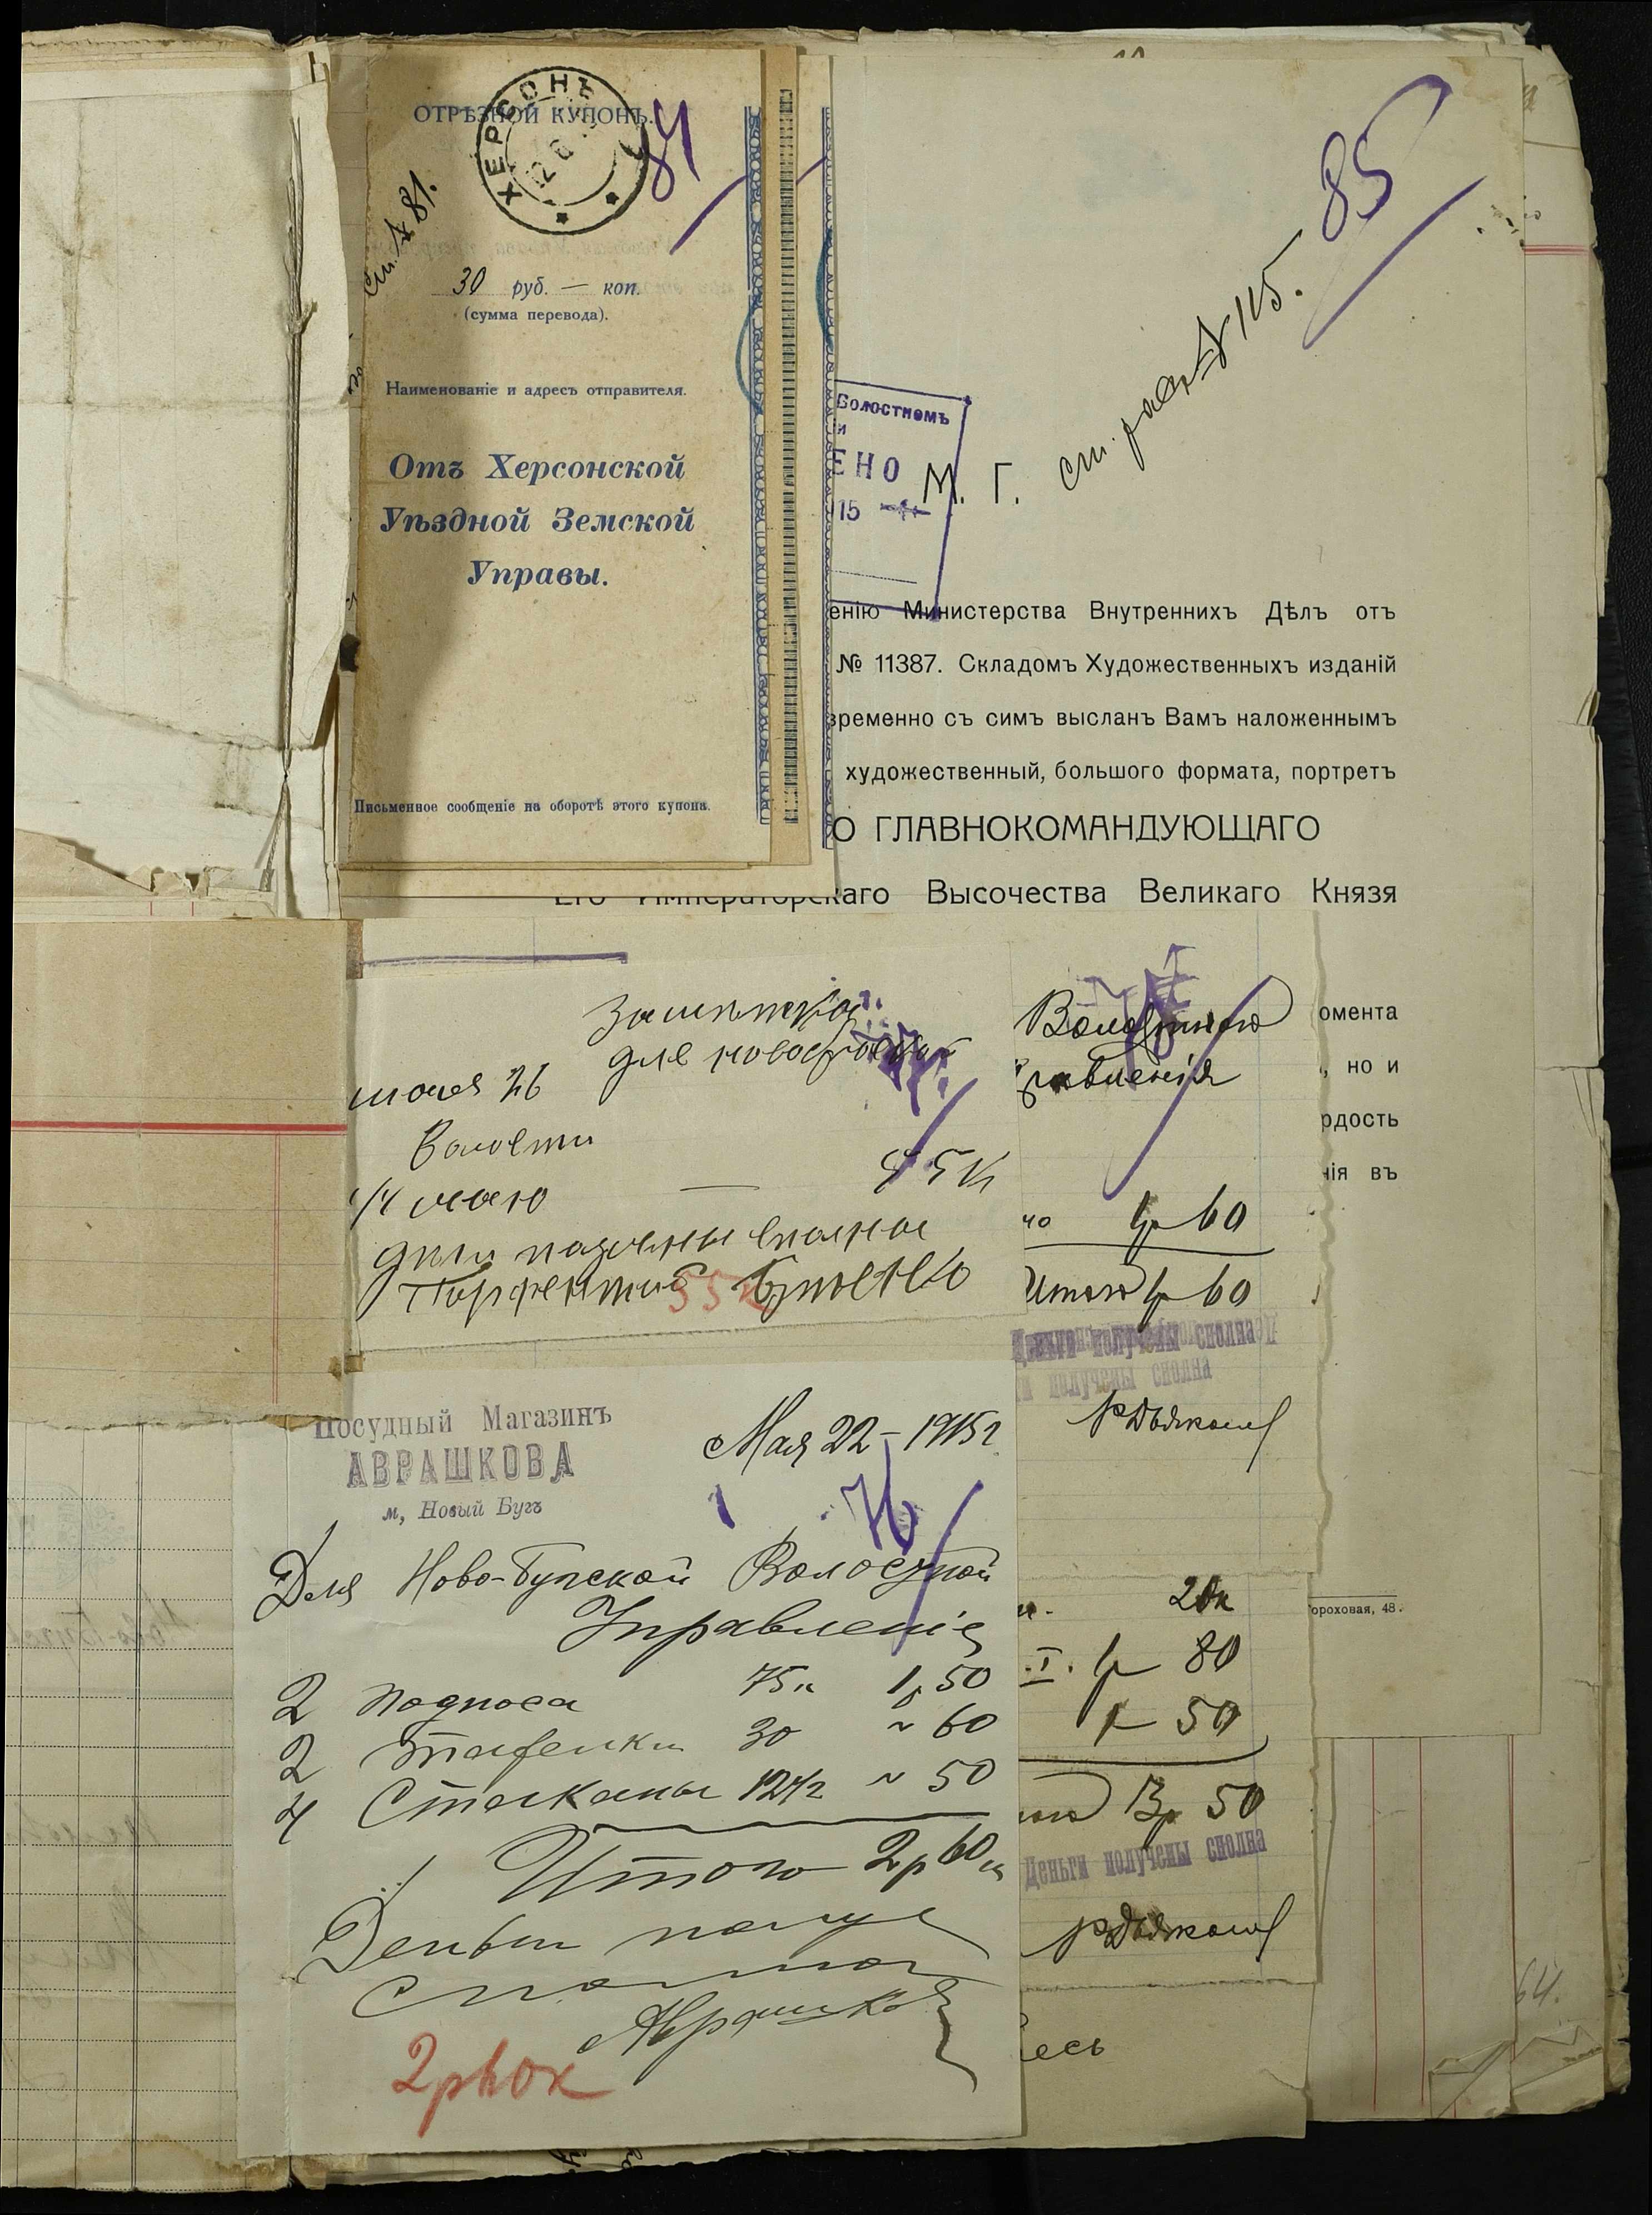 ОТРѢЗНОЙ КУПОНЪ.
ХЕРСОНЪ
84
ст. № 81.
30 руб. — коп.
(сумма перевода).
Наименованіе и адресъ отправителя.
Отъ Херсонской
Уѣздной Земской
Управы.
Письменное сообщеніе на оборотѣ этого купона.
85
№ 115.
Волостномъ
ЕНО
15
М. Г.
енію Министерства Внутреннихъ Дѣлъ отъ
№ 11387. Складомъ Художественныхъ изданій
временно съ симъ высланъ Вамъ наложеннымъ
художественный, большого формата, портретъ
О ГЛАВНОКОМАНДУЮЩАГО
Его Императорскаго Высочества Великаго Князя
омента
, но и
рдость
нія въ
ороховая, 48.
для
26
Волости
55к
Волостного
Правленія
1р 60
Итого 1р 60
Деньги получены сполна
получены сполна
РДьяковъ
Посудный Магазинъ
АВРАШКОВА
м, Новый Бугъ
Мая 22 – 1915г
76
Для Ново-Бугской Волостной
Управленіе
2 подноса 75к 1р 50
2 Тарелки 30 ~ 60
4 Стаканы 12½ ~ 50
Итого 2р 60к
Деньги получ
сполна
Аврашковъ
2р60к
20к
I. 1р 80
1р 50
3р 50
Деньги получены сполна
РДьяковъ
есь
64.